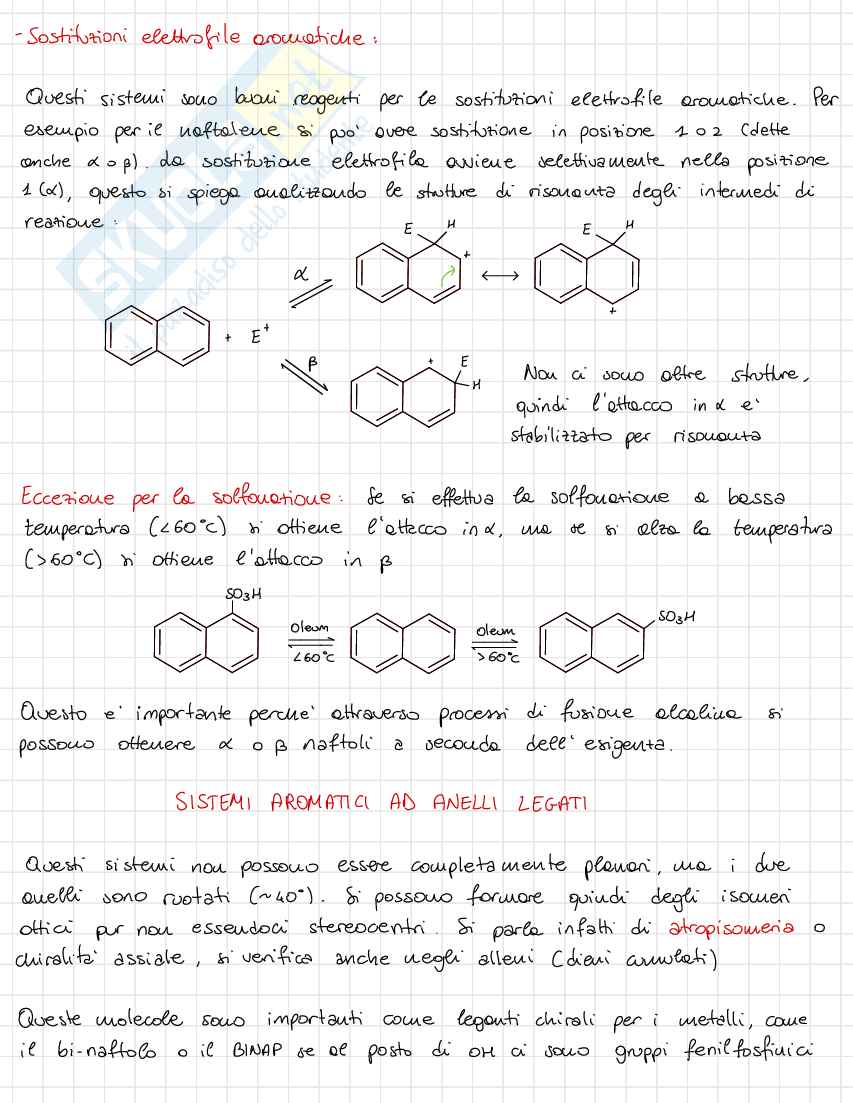 - Sostituzioni elettrofile aromatiche:
Questi sistemi sono buoni reagenti per le sostituzioni elettrofile aromatiche. Per
esempio per il naftalene si puo' avere sostituzione in posizione 1 o 2 (dette
anche α o β). La sostituzione elettrofila avviene selettivamente nella posizione
1 (α), questo si spiega analizzando le strutture di risonanza degli intermedi di
reazione:
E H
+
E H
+
α
+ E+
β
+
E
H
Non ci sono altre strutture,
quindi l'attacco in α e'
stabilizzato per risonanza
Eccezione per la solfonazione: Se si effettua la solfonazione a bassa
temperatura (<60°C) si ottiene l'attacco in α, ma se si alza la temperatura
(>60°C) si ottiene l'attacco in β
SO3H
Oleum
<60°C
Oleum
>60°C
SO3H
Questo e' importante perche' attraverso processi di fusione alcalina si
possono ottenere α o β naftoli a seconda dell'esigenza.
SISTEMI AROMATICI AD ANELLI LEGATI
Questi sistemi non possono essere completamente planari, ma i due
anelli sono ruotati (~40°). Si possono formare quindi degli isomeri
ottici pur non essendoci stereocentri. Si parla infatti di atropisomeria o
chiralita' assiale, si verifica anche negli alleni (dieni cumulati)
Queste molecole sono importanti come leganti chirali per i metalli, come
il bi-naftolo o il BINAP se al posto di OH ci sono gruppi fenilfosfinici
SKUOLA.net
il paradiso dello studente